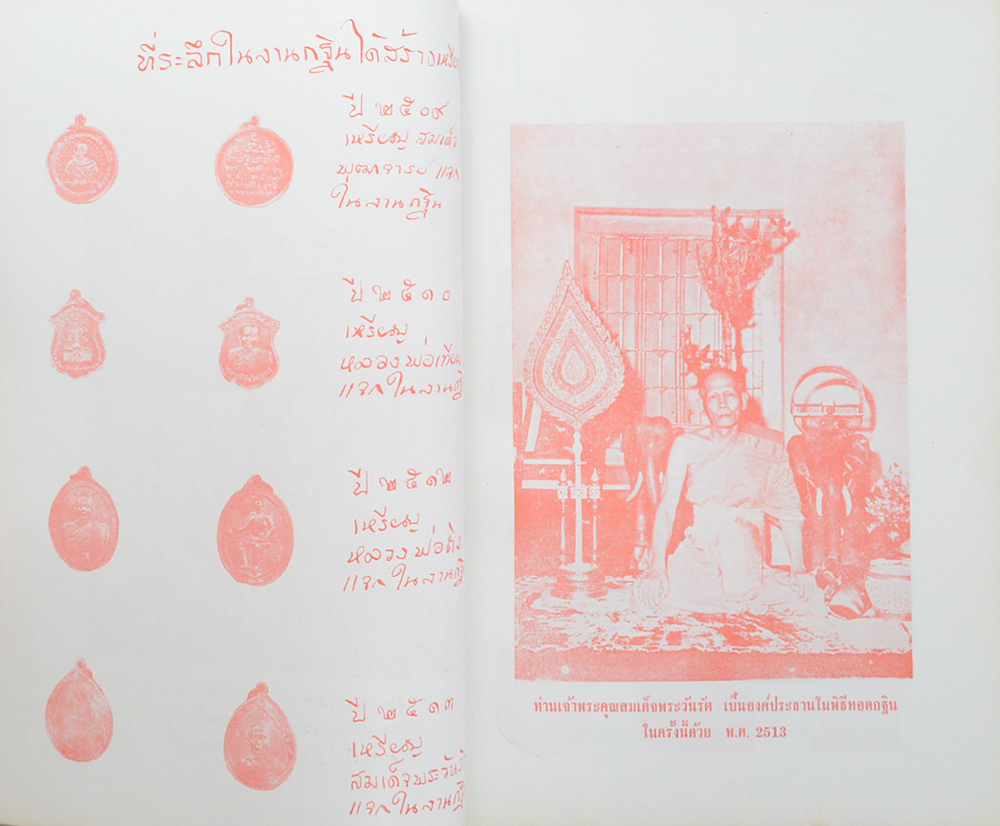 ที่ระลึกในงานกฐินได้สร้างเหรียญ
ปี ๒๕๐๙
เหรียญ สมเด็จ
พุฒาจารย์ แจก
ในงานกฐิน
ปี ๒๕๑๐
เหรียญ
หลวงพ่อ
แจกในงานกฐิ
ปี ๒๕๑๒
เหรียญ
หลวงพ่อ
แจกในงานกฐิ
ปี ๒๕๑๓
เหรียญ
สมเด็จพระวันรั
แจกในงานกฐิ
ท่านเจ้าพระคุณสมเด็จพระวันรัต เป็นองค์ประธานในพิธีทอดกฐิน
ในครั้งนี้ด้วย พ.ศ. 2513